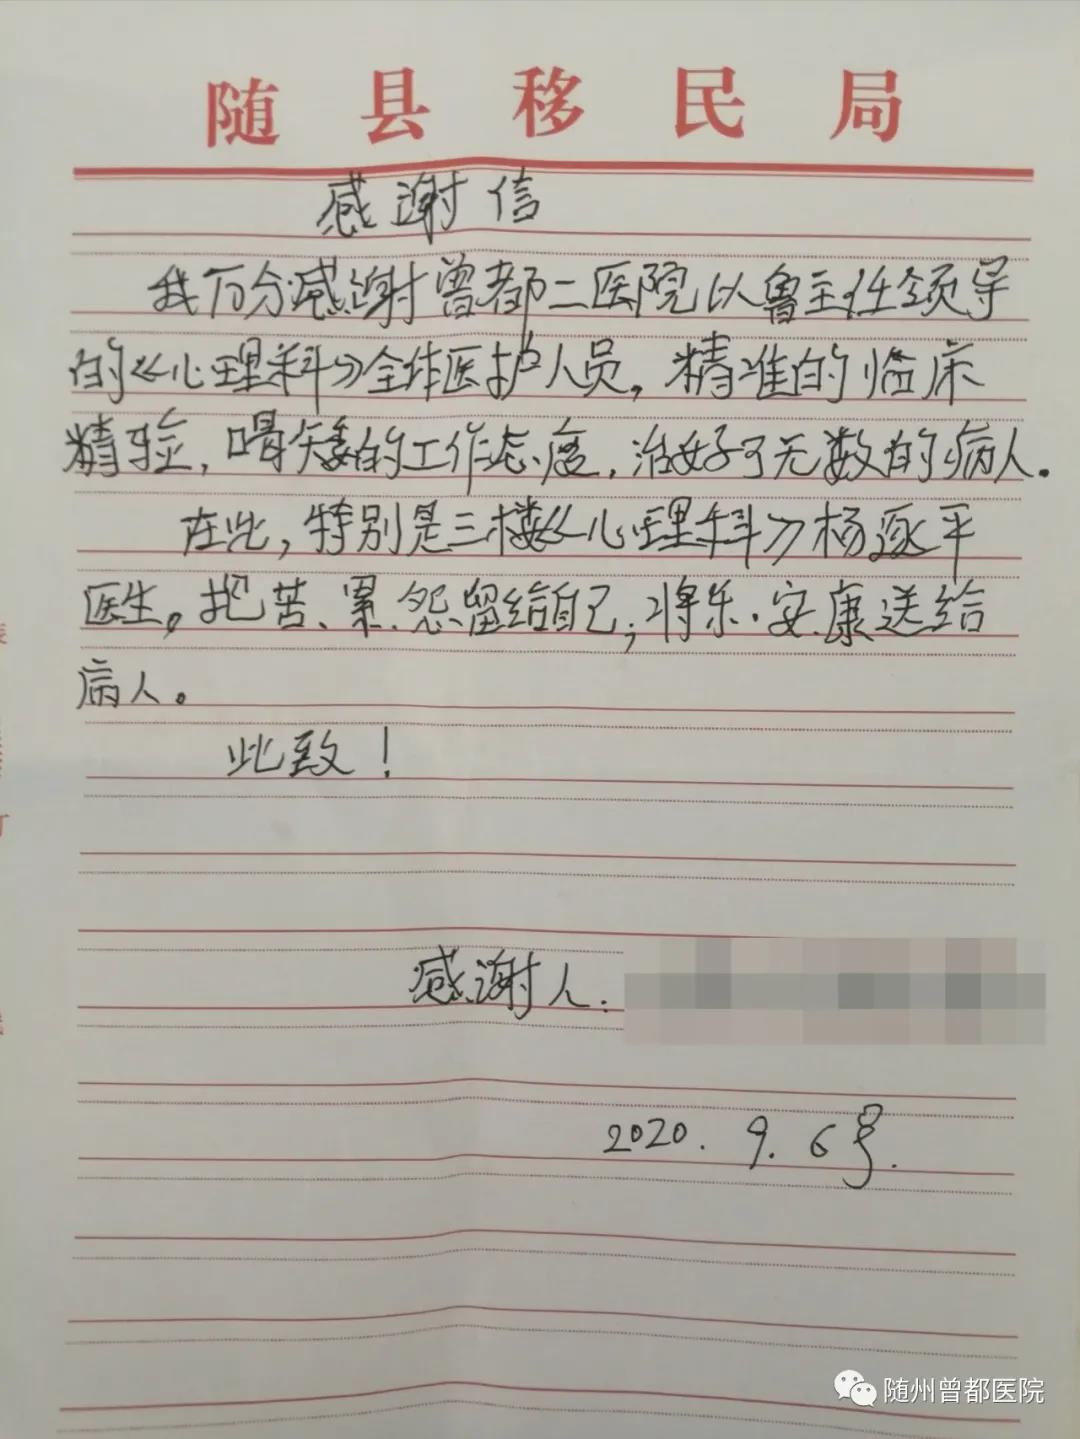 随县移民局
感谢信
我万分感谢曾都二医院以鲁主任领导
的《心理科》全体医护人员，精准的临床
精验，的工作态度，治好了无数的病人。
在此，特别是三楼《心理科》杨逐平
医生，把苦、累、怨留给自己；将乐、安、康送给
病人。
此致！
感谢人：
2020.9.6号.
随州曾都医院